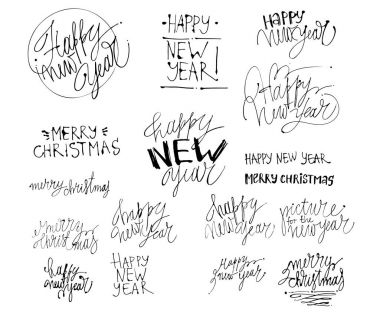 Happy
new
Year
HAPPY
NEW
YEAR!
HAPPY
NewYear
Happy
New year
MERRY
CHRISTMAS
happy
NEW
year
HAPPY NEW YEAR
MERRY CHRISTMAS
merry christmas
merry
christmas
happy
new year
happy
new year
picture
for the
new year
happy
new year
HAPPY
NEW
YEAR
happy
New Year
merry
christmas